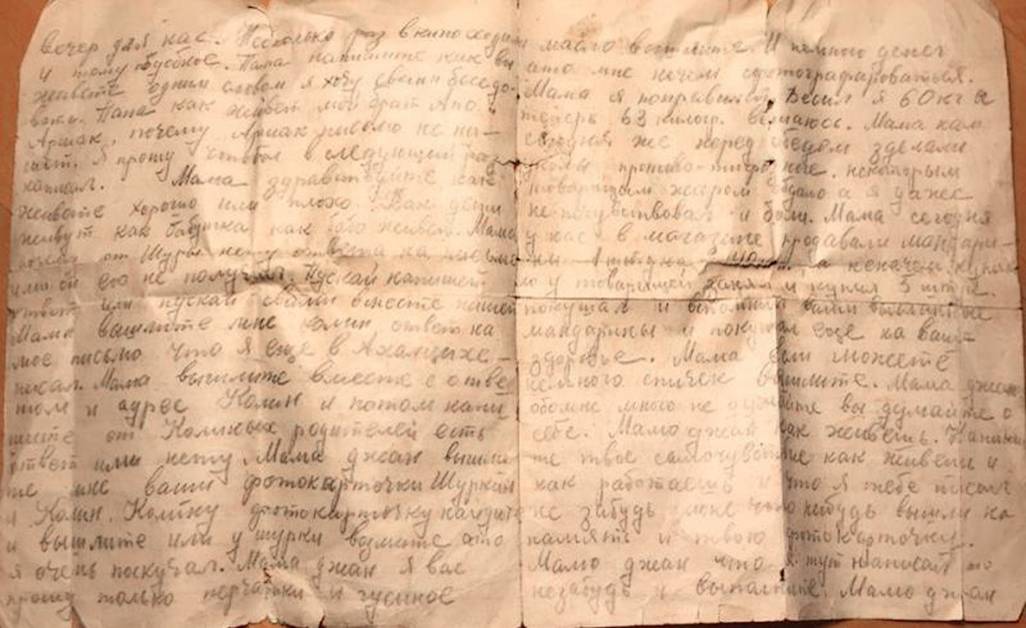 вечер для нас. Несколько раз в кино ходили
и тому подобное. Папа напишите как вы
живете одним словом я хочу с вами беседо-
вать. Папа как живет мой брат Апо.
Аршак, почему Аршак письмо не пи-
шет. Я прошу чтобы в следующий раз
написал. Мама здравствуйте как
живете хорошо или плохо. Как дети
живут как бабушка как живет. Мама
почему от Шуры нету ответа на письмо
или он его не получил. Пускай напишет
ответ или пускай с вами вместе пишет
Мама вышлите мне Колин ответ на
мое письмо что я еще в Ахалцыхе
писал. Мама вышлите вместе с отве
том и адрес Колин и потом напи
шите от Колиных родителей есть
ответ или нету. Мама джан вышли
те мне ваши фотокарточки Шуркин
и Колин. Колину фотокарточку находите
и вышлите или у Шурки возмите ато
я очень поскучал. Мама джан я вас
прошу только перчатки и гусиное
масло вышлите. И немного денег
ато мне нечем сфотографироваться.
Мама я поправился. Весил я 60 кг а
теперь 63 килогр. Мама нам
сегодня же перед обедом зделали
уколы некоторым
товарищам жаром а я даже
не почувствовал и боли. Мама сегодня
у нас в магазине продавали мандари-
ны 1 штука а не на чем купил
но у товарищей занял и купил 5 штук
покушал и вспомнил вами высланные
мандарины и покушал еще на ваше
здоровье. Мама если можете
немного спичек вышлите. Мама джан
обомне много не думайте вы думайте о
себе. Мамо джан как живешь. Напиши
те твое самочувствие как живешь и
как работаешь и что я тебе писал
не забудь мне что нибудь вышли на
память и твою фотокарточку.
Мамо джан что я тут написал то
незабудь и выполните. Мамо джан